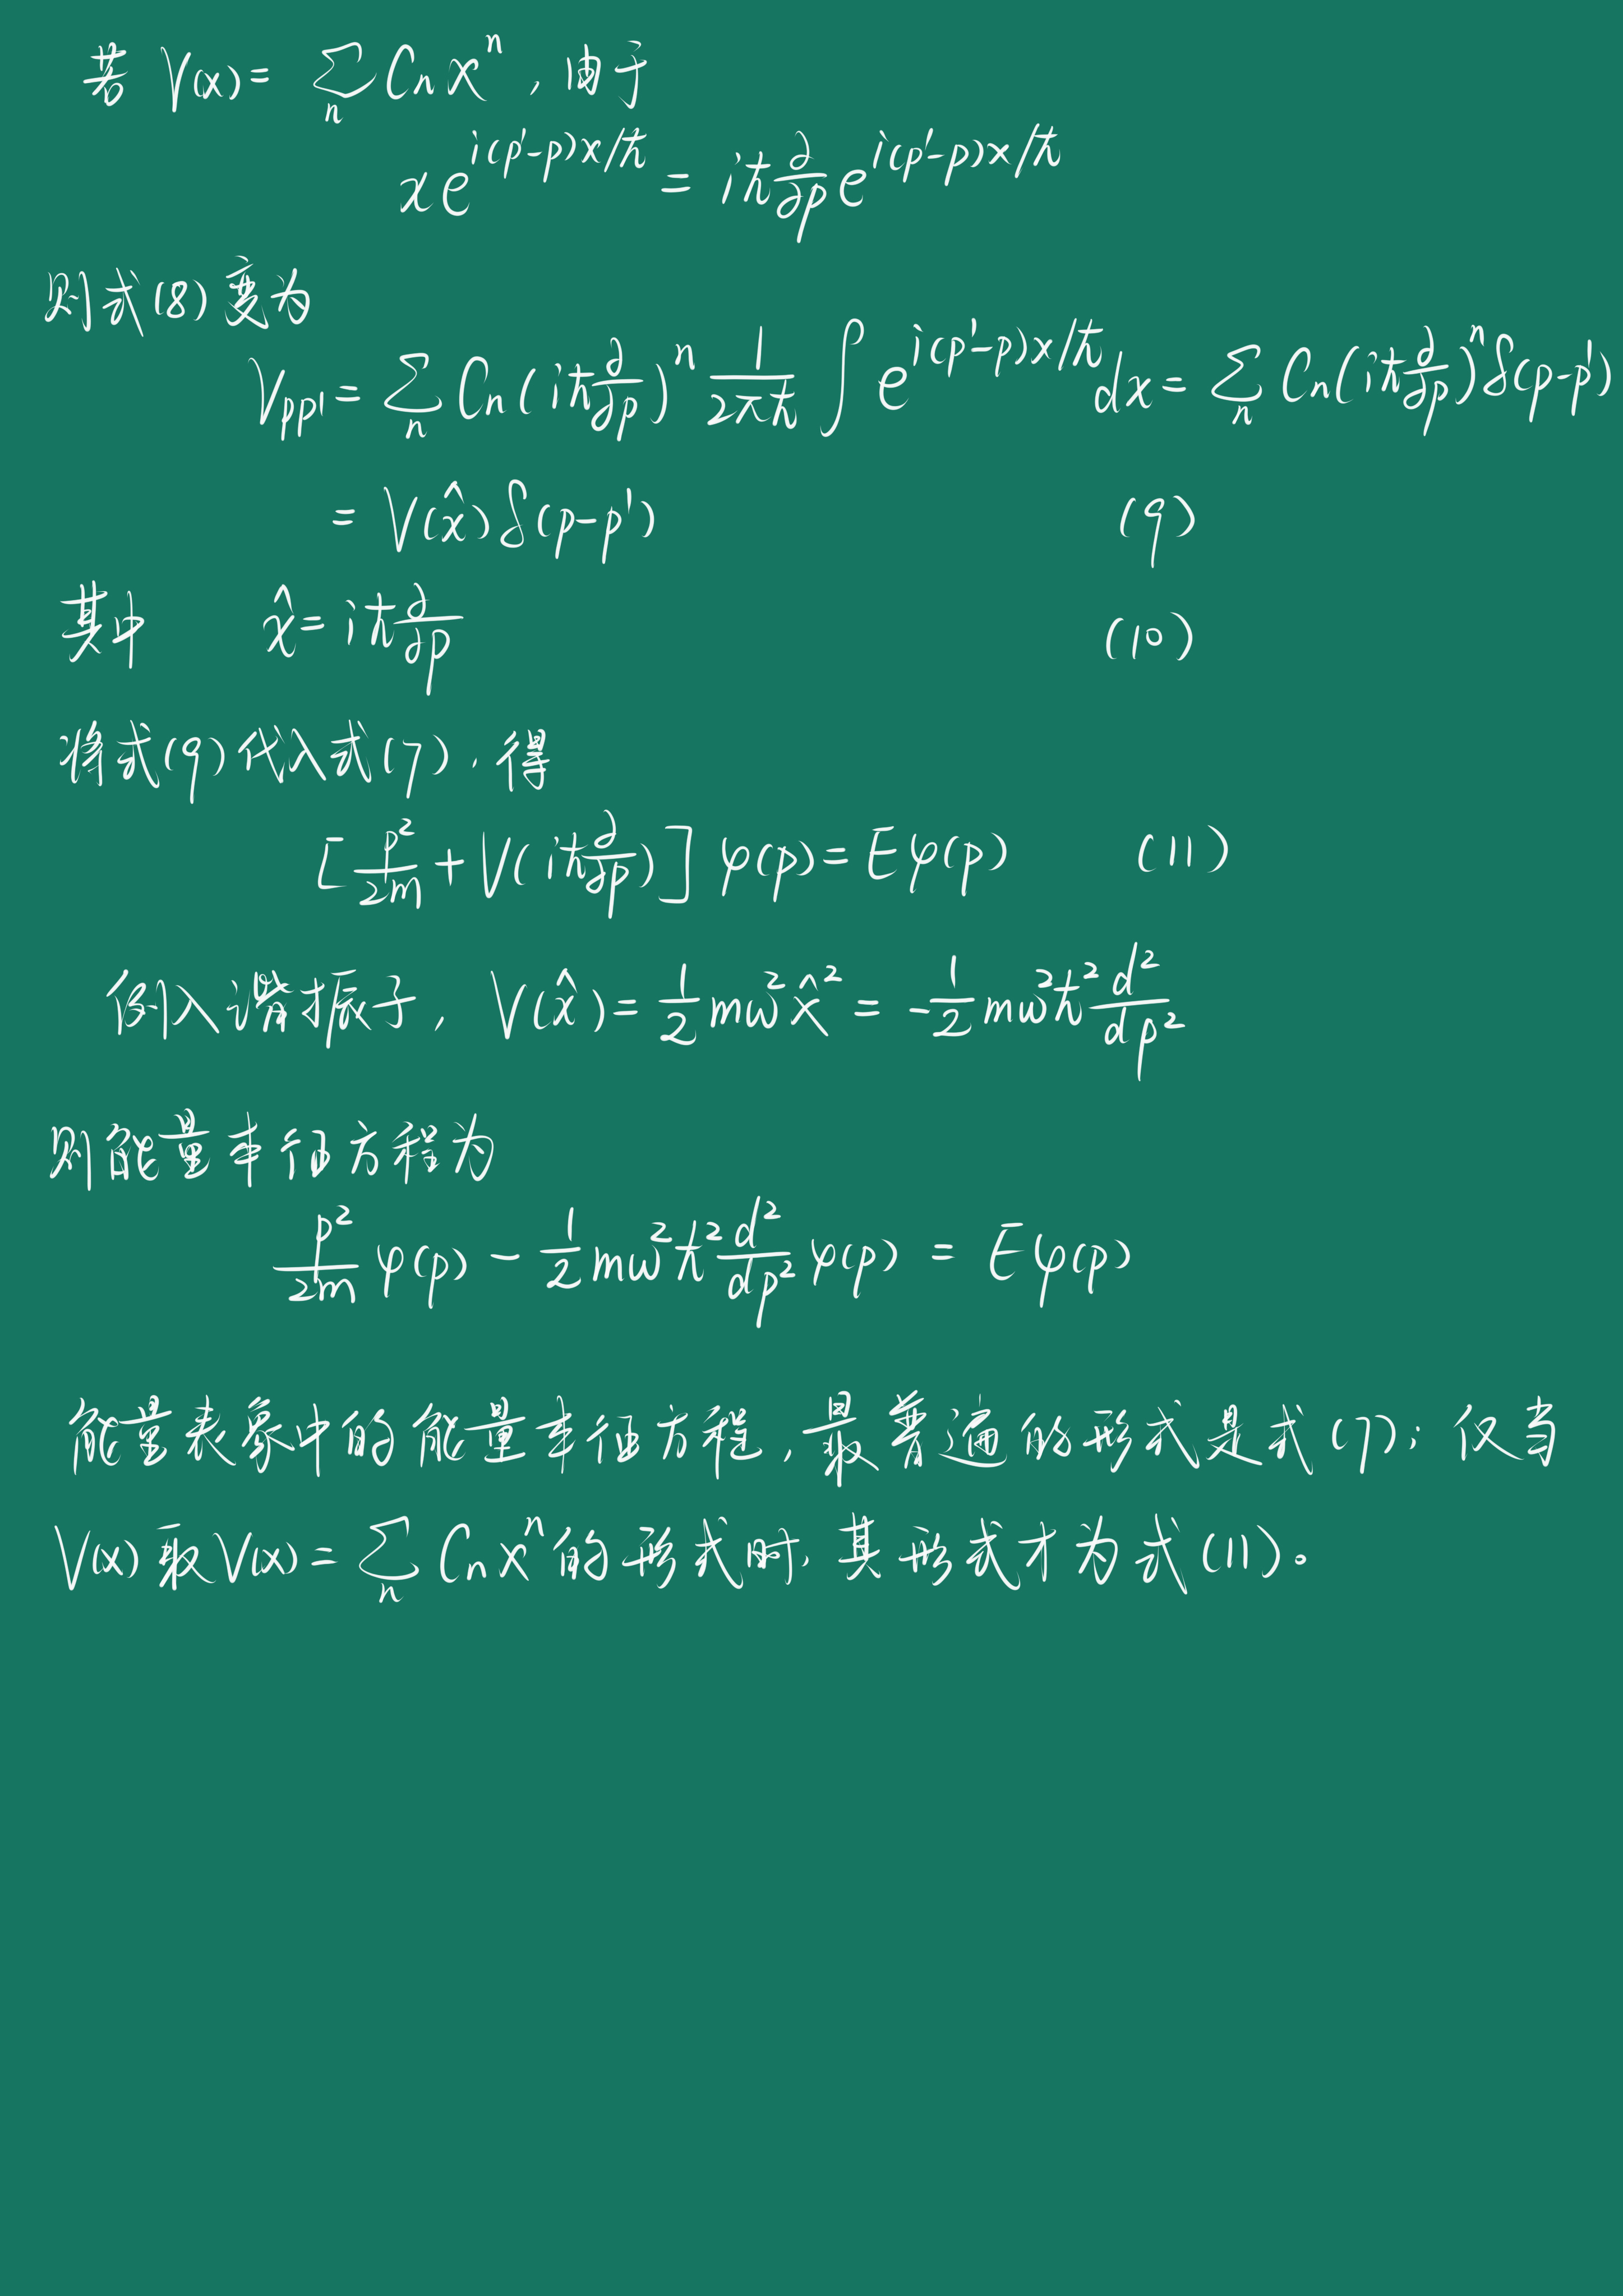 若 V(x) = ∑_n Cn x^n , 由于
x e^{i(p'-p)x/ħ} = iħ ∂/∂p e^{i(p'-p)x/ħ}
则式(8)变为
V_{pp'} = ∑_n Cn (iħ ∂/∂p)^n 1/(2πħ) ∫ e^{i(p'-p)x/ħ} dx = ∑_n Cn (iħ ∂/∂p)^n δ(p-p')
= V(x̂) δ(p-p') (9)
其中 x̂ = iħ ∂/∂p (10)
将式(9)代入式(7), 得
[p²/2m + V(iħ ∂/∂p)] φ(p) = Eφ(p) (11)
例入谐振子, V(x̂) = 1/2 mω² x̂² = -1/2 mω²ħ² d²/dp²
则能量本征方程为
p²/2m φ(p) - 1/2 mω²ħ² d²/dp² φ(p) = Eφ(p)
能量表象中的能量本征方程, 最普遍的形式是式(7); 仅当
V(x)取V(x) = ∑_n Cn x^n 的形式时, 其形式才为式(11)。